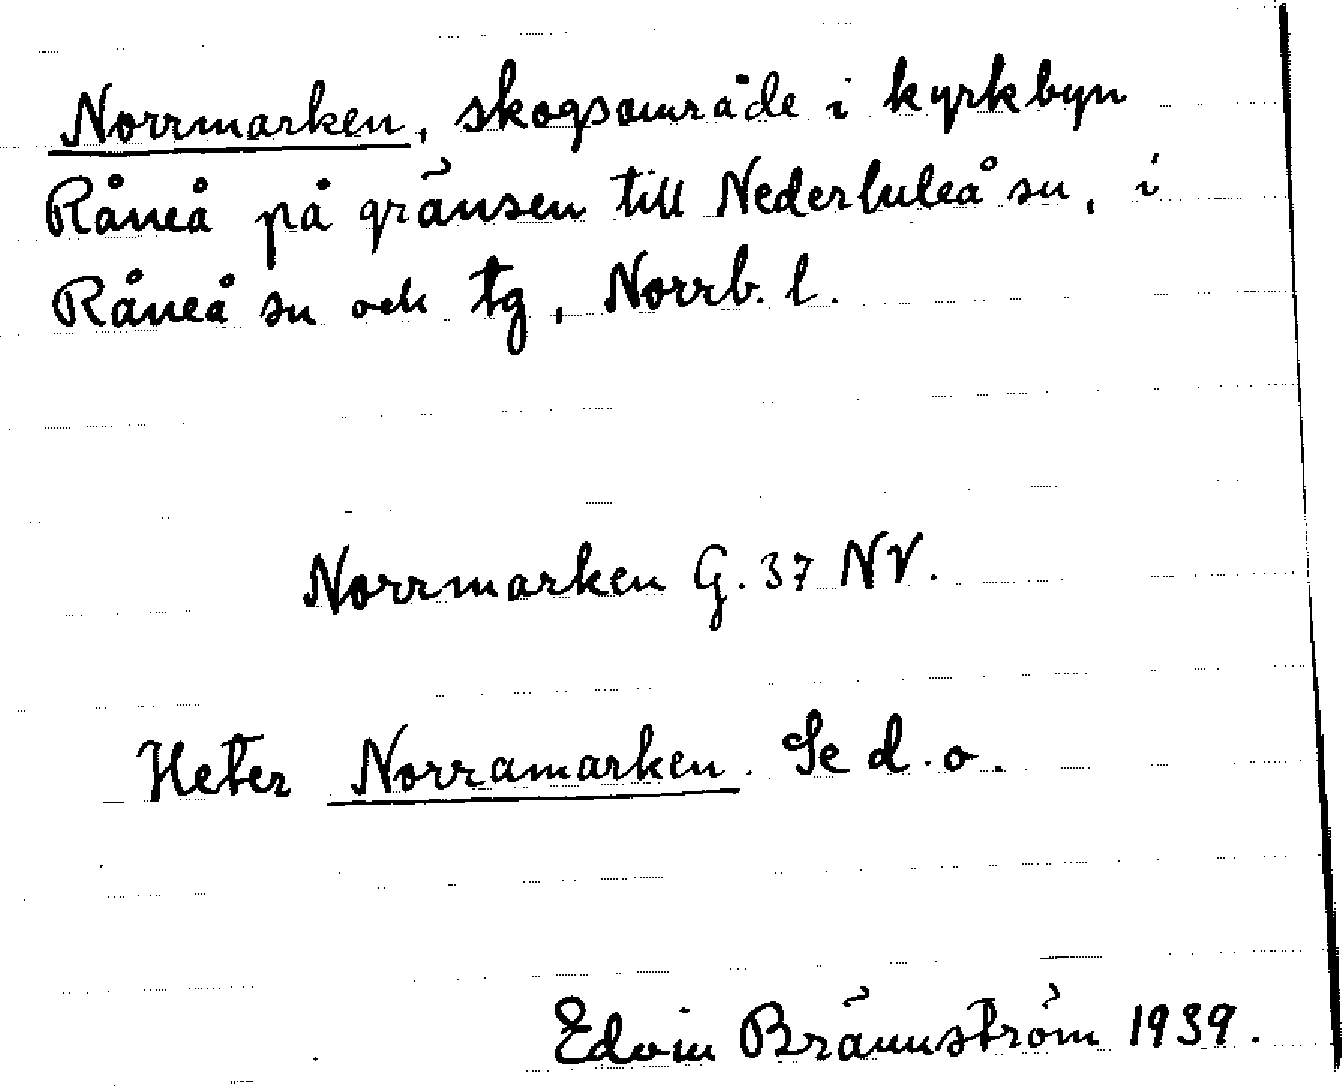 Norrmarken, skogsområde i kyrkbyn
Råneå på gränsen till Nederluleå sn, i
Råneå sn och tg, Norrb. l.
Norrmarken G. 37 NV.
Heter Norramarken. Se d. o.
Edvin Brännström 1939.